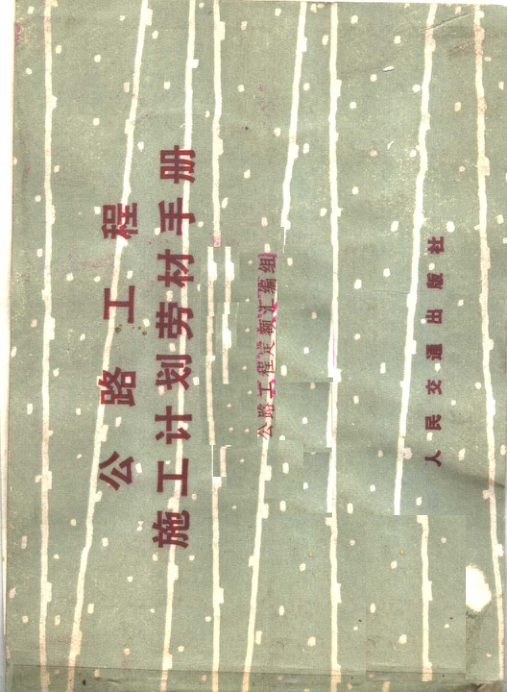 公路工程
施工计划劳材手册
公路工程定额汇编组
人民交通出版社